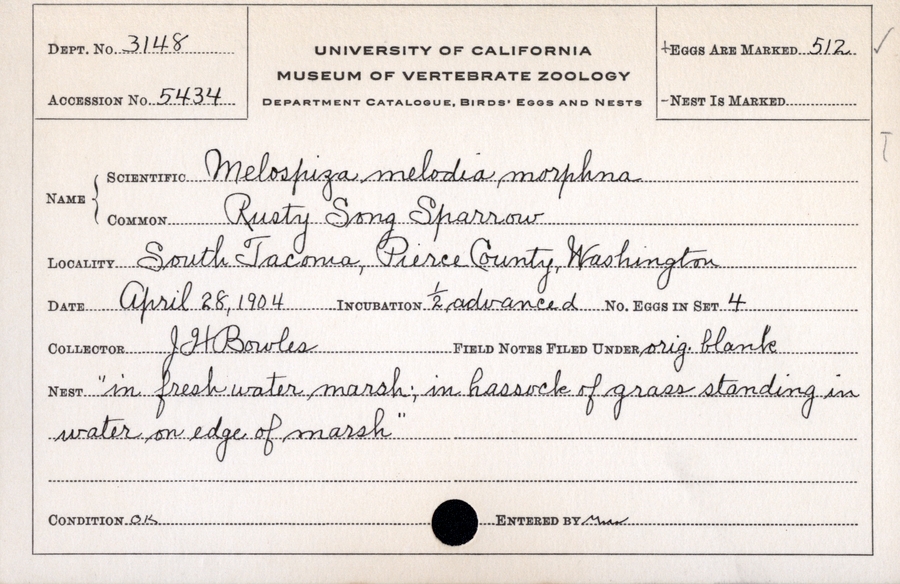 Dept. No. 3148
UNIVERSITY OF CALIFORNIA
MUSEUM OF VERTEBRATE ZOOLOGY
Department Catalogue, Birds' Eggs and Nests
+Eggs Are Marked 512 ✓
Accession No. 5434
-Nest Is Marked
T
Name { Scientific Melospiza melodia morphna
Common Rusty Song Sparrow
Locality South Tacoma, Pierce County, Washington
Date April 28, 1904 Incubation ½ advanced No. Eggs in Set 4
Collector J H Bowles Field Notes Filed Under orig. blank
Nest "in fresh water marsh; in hassock of grass standing in
water on edge of marsh"
Condition OK Entered by